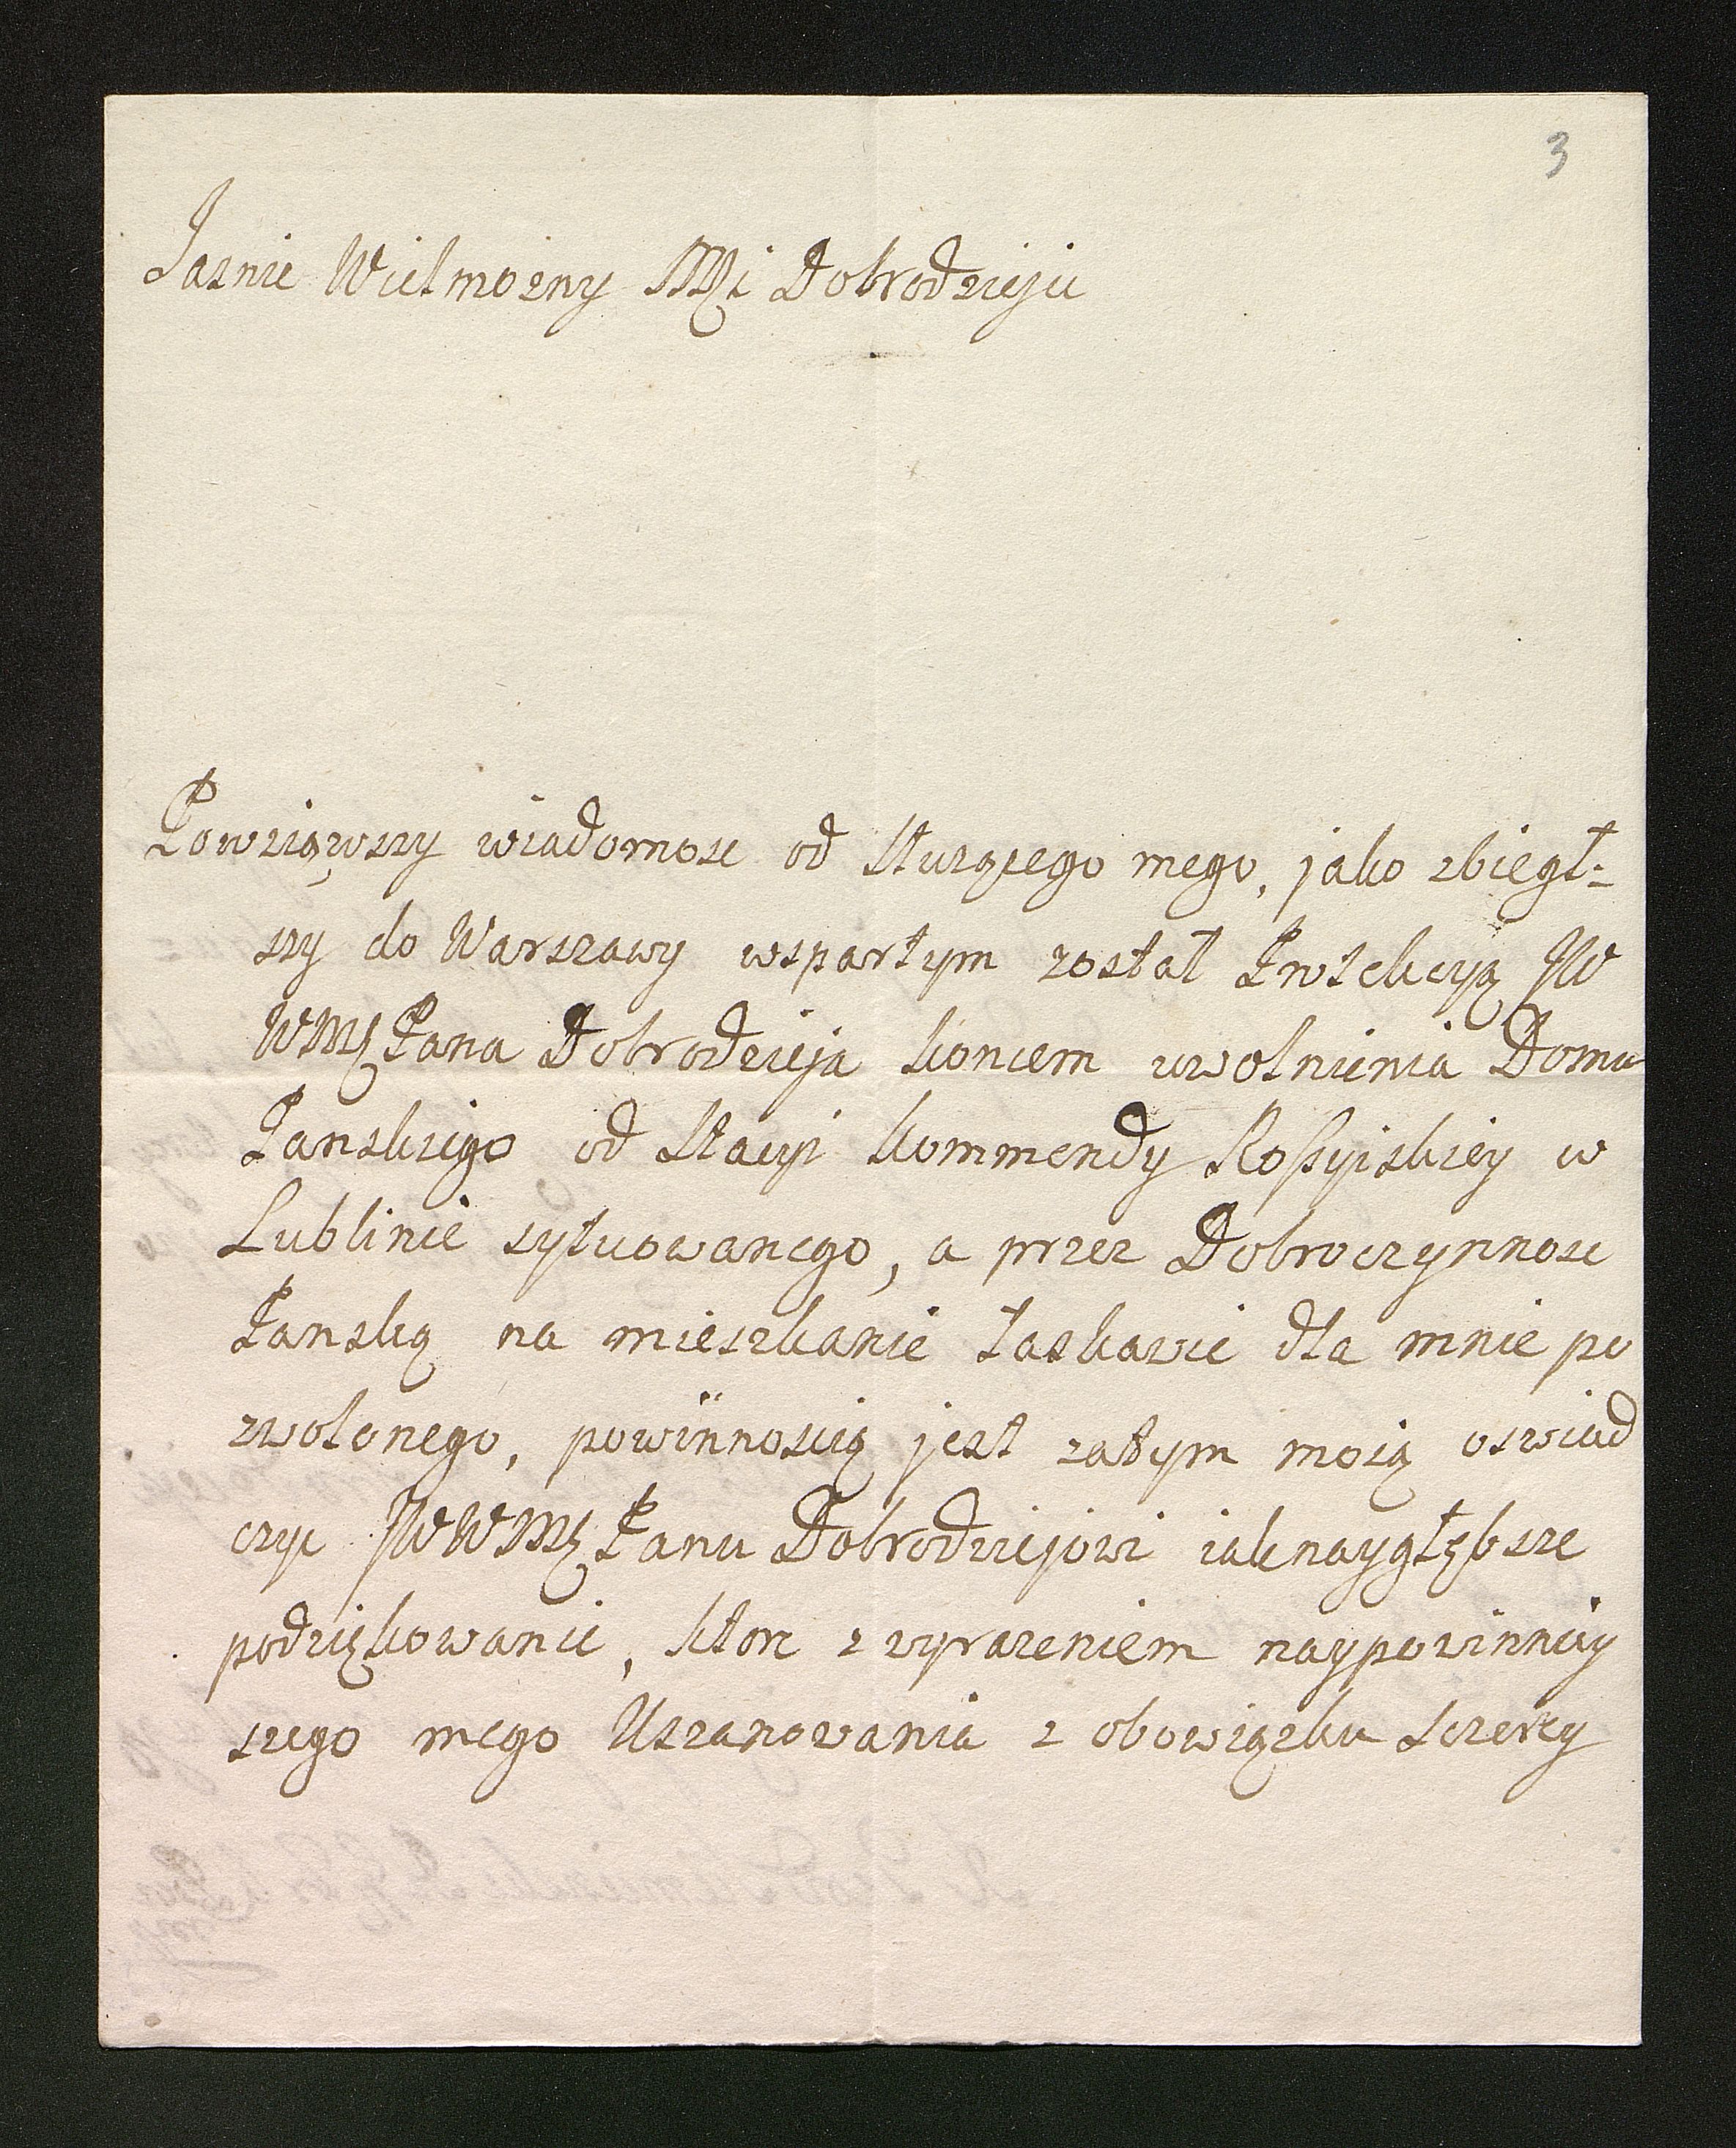 3
Jasnie Wielmozny Mci Dobrodzieju
Powziąwszy wiadomosc od słuzącego mego, jako zbiegł-
szy do Warszawy wspartym został Protekcyą JW
WMĘ Pana Dobrodzieja koncem uwolnienia Domu
Panskiego od Stacyi kommendy Rossyiskiey w
Lublinie sytuowanego, a przez Dobroczynnosc
Panską na mieszkanie łaskawie dla mnie po
zwolonego, powinnoscią jest zatym moią oswiad
czyc JWWMĘ Panu Dobrodziejowi iaknaygłębsze
podziękowanie, ktore z wyrazeniem naypowinniey
szego mego Uszanowania z obowiązku sczerey